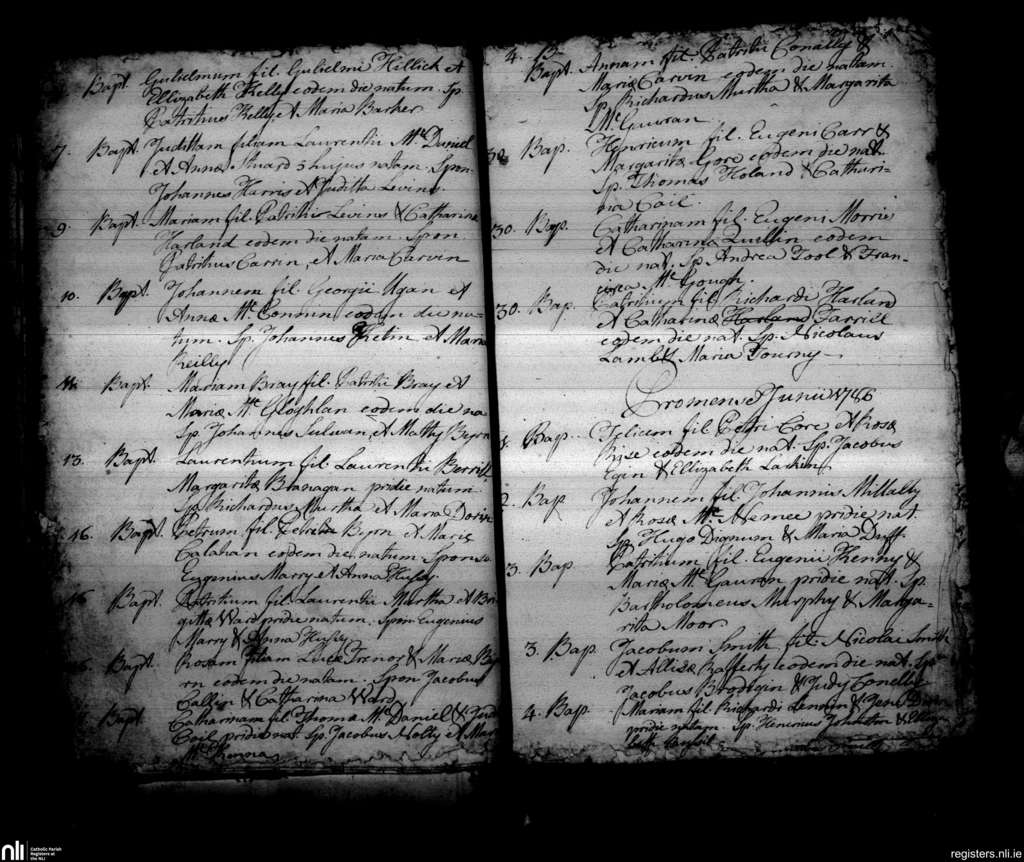 Bapt. Gulielmum fil. Gulielmi Hillick et
Ellizabeth Kelly eodem die natum. Sp.
Patritius Kelly et Maria Barker
7. Bapt. Judittam filiam Laurentii Mc Daniel
et Annæ 5 hujus natam. Spon.
Johannes Harris et Juditta Levins.
9. Bapt. Mariam fil. Patritii Levins & Catharina
Harland eodem die natam. Spon.
Patritius Carvin, et Maria Carvin
10. Bapt. Johannem fil. Georgii Ugan et
Annæ Mc eodem die na-
tum. Sp. Johannes et Maria
Reilly
11. Bapt. Mariam Bray fil. Patritii Bray et
Mariæ Mc Gloghlan eodem die na
Sp. Johannes Sulivan, et Mathy Byrn
13. Bapt. Laurentium fil. Laurentii
Margaritæ Branagan pridie natum.
Sp. Richardus Murtha et Maria
16. Bapt. Petrum fil. Petri Byrn et Mariæ
Calahan eodem die natum. Spon.
Eugenius Marry et Anna Husey
16 Bapt. Patritium fil. Laurentii Murtha et Bri-
gittæ Ward pridie natum. Spon Eugenius
Marry & Anna Husey
Bapt. Rosam filiam Lucæ Trenor & Mariæ By
rn eodem die natam. Spon Jacobus
& Catharina Ward
Bapt. Catharinam fil. Thomæ Mc Daniel & Jud
Coil pridie nat. Sp. Jacobus Nolty et Mar
Mc Thomas
4. B
Bapt. Annam fil. Patritii Conally &
Mariæ Carvin eodem die natam.
Sp. Richardus Murtha & Margarita
Mc Guuran
Bap. Henricum fil. Eugeni Carr &
Margaritæ Gore eodem die nat.
Sp. Thomas Holand & Cathari-
na Coil.
30. Bap. Catharinam fil. Eugeni Morris
et Catharina Quillin eodem
die nat. Sp. Andrea Tool & Fran-
Mc Gough
30. Bap. Patritium fil. Richardi Harlan
et Catharinæ Harland Farrell
eodem die nat. Sp. Nicolaus
Lamb & Maria Tourny
Pro mense Junii 1786
1. Bap. fil. Petri Core et Rosæ
Rise eodem die nat. Sp. Jacobus
Egin & Ellizabeth Larkin
2. Bap Johannem fil. Johannis Millaby
et Rosæ Mc Nemee pridie nat
Sp. Hugo Dignum & Maria Duff.
3. Bap Patritium fil. Eugenii Kenny &
Mariæ Mc Gauran pridie nat. Sp.
Bartholomeus Murphy & Marga-
rita Moor
3. Bap. Jacobum Smith fil. Nicolai Smith
et Allisæ Rafferty eodem die nat. Sp.
Jacobus Brodigin & Judy Conelly
4. Bap. Mariam fil. Richardi
pridie natam. Sp. Henricus Johnston &
nli
Catholic Parish
Registers at
the NLI
registers.nli.ie